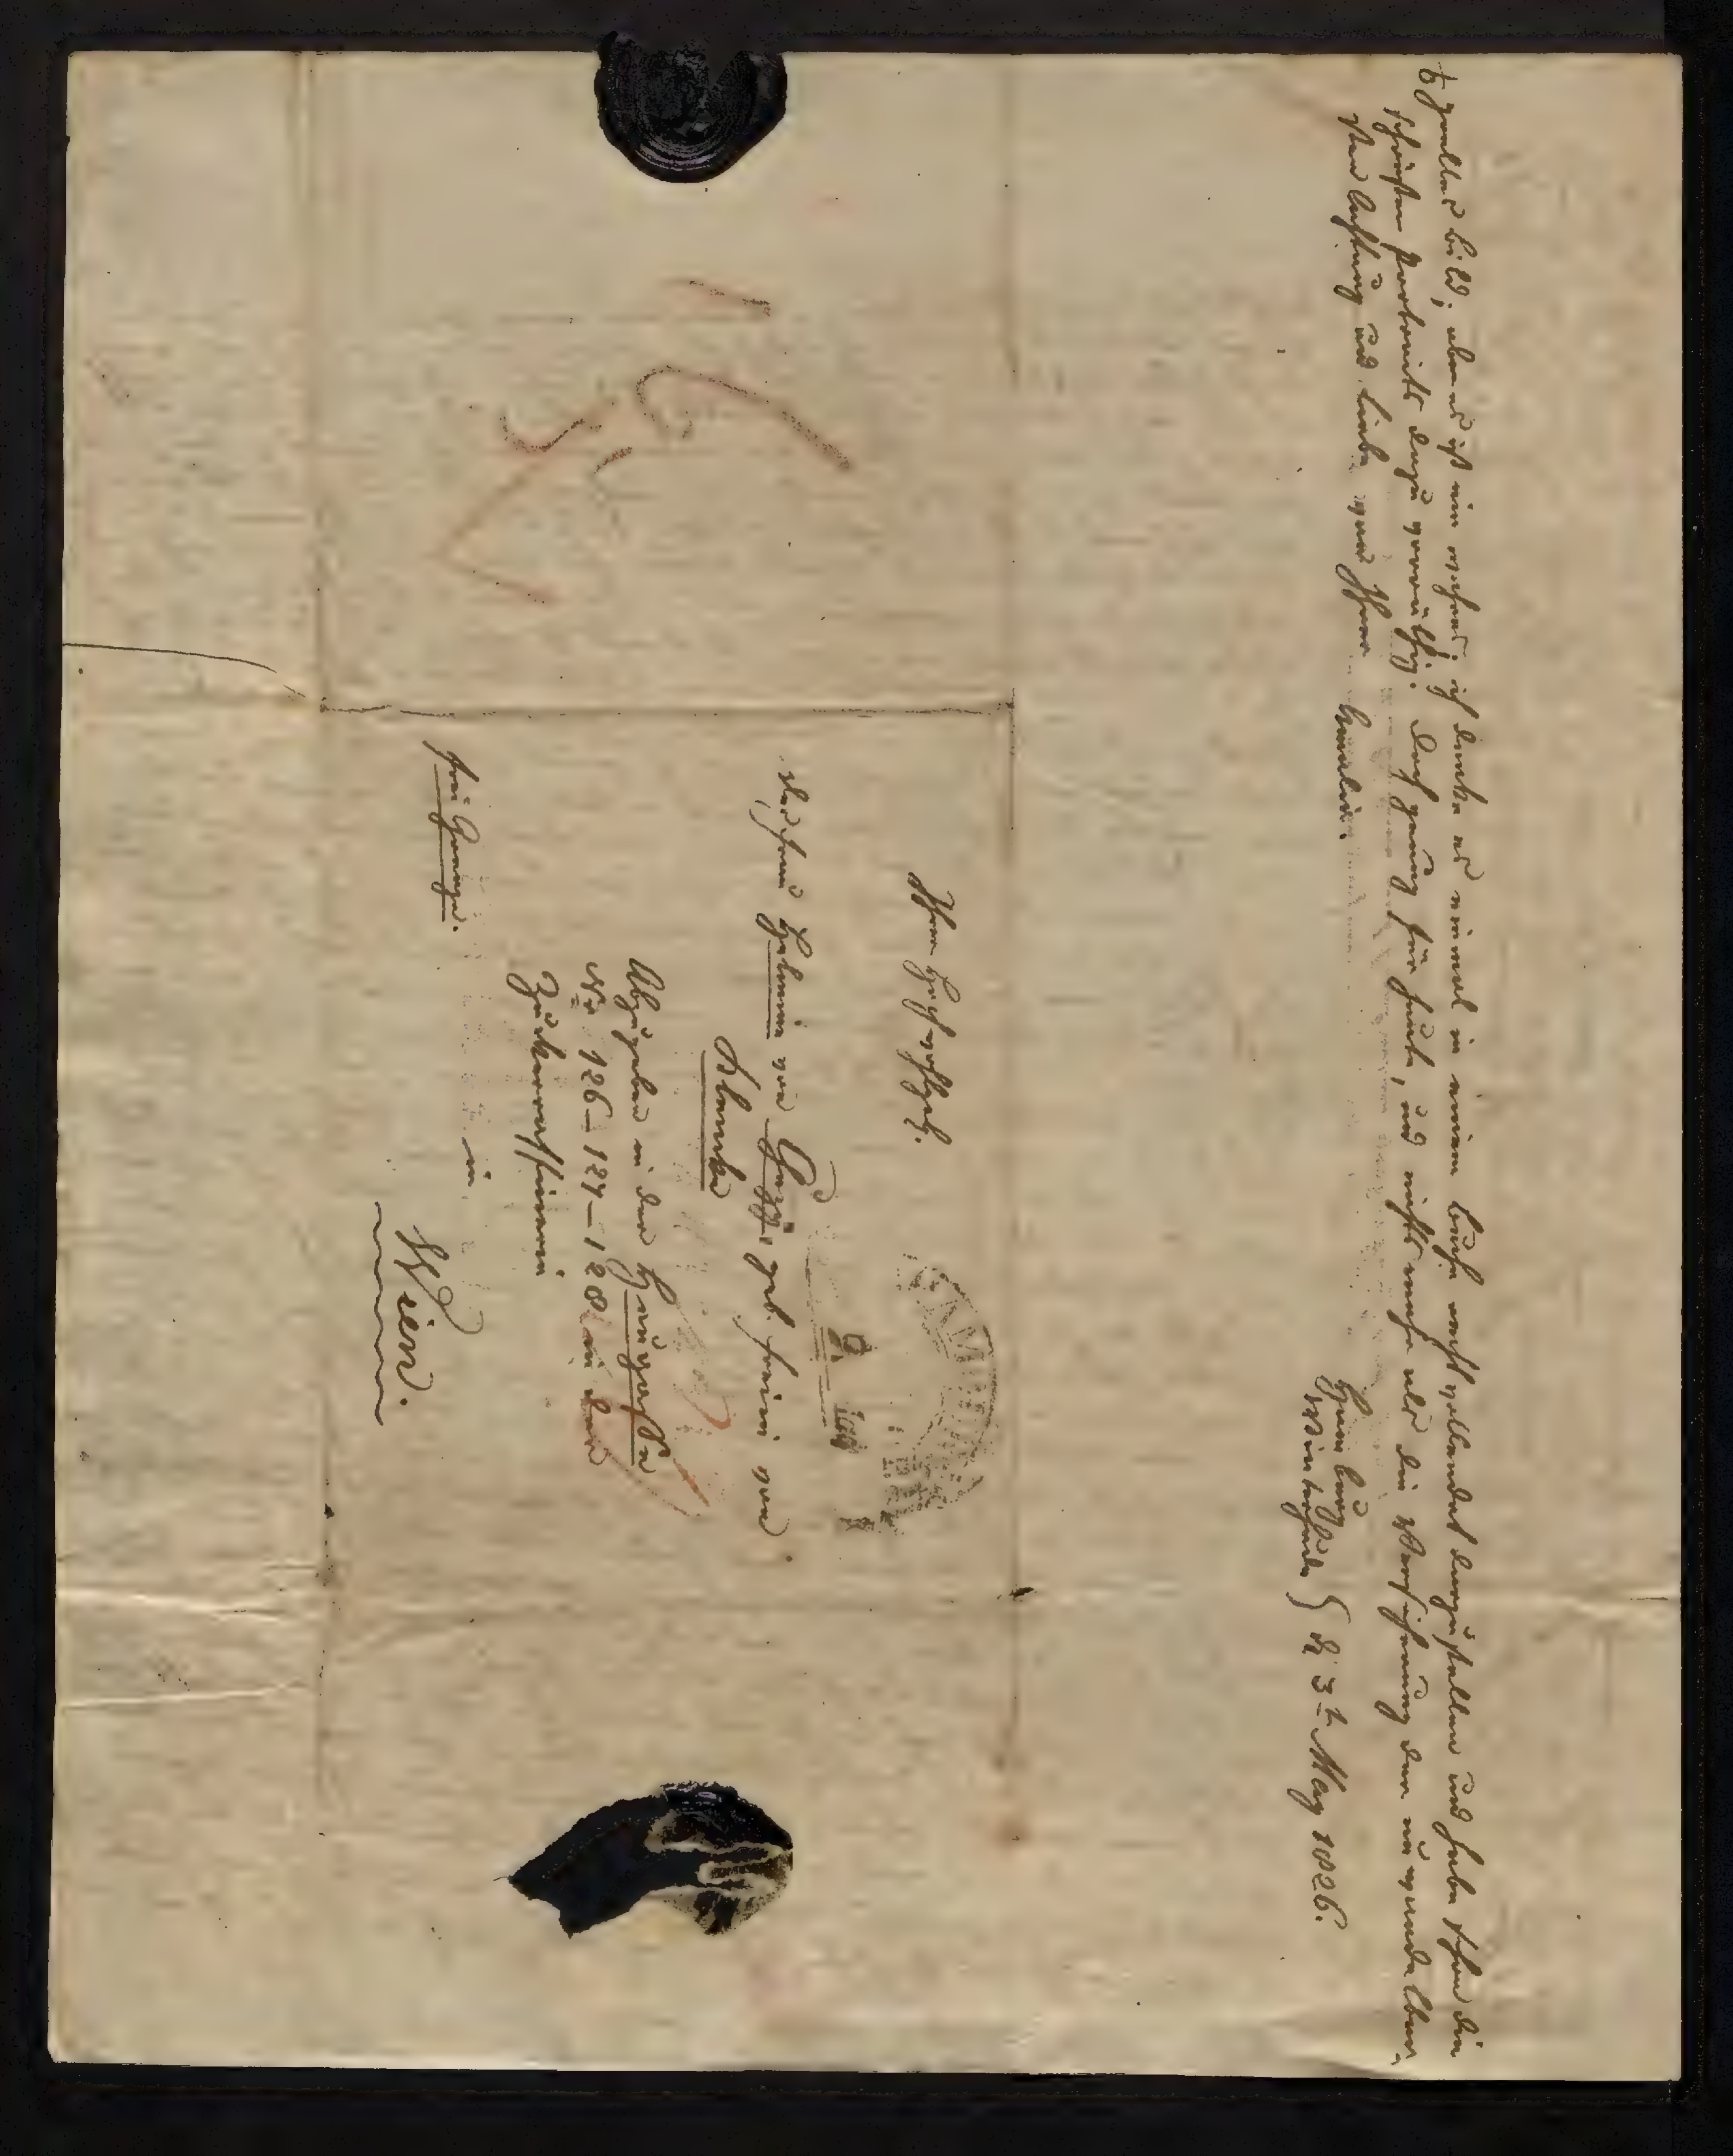 grelles bild; aber es ist ein wahres; ich denke es einmal in einem buche recht vollendet darzustellen und habe schon die
schönsten portraits dazu vorräthig. Doch genug für heute, und nichts mehr als die Versicherung der unwandelbar-
sten Achtung und Liebe von Ihrer Amalia.
Hamburg
Winterhude } d. 3t May 1826.
Ihro Hochwohlgeb.
der Frau Helmina von Chezy geb. Freiin von
Klencke
Abzugeben in der Heugasse
No 126–127–128 in der
Zuckerraffinerie
in
Wien.
frei Grenze.